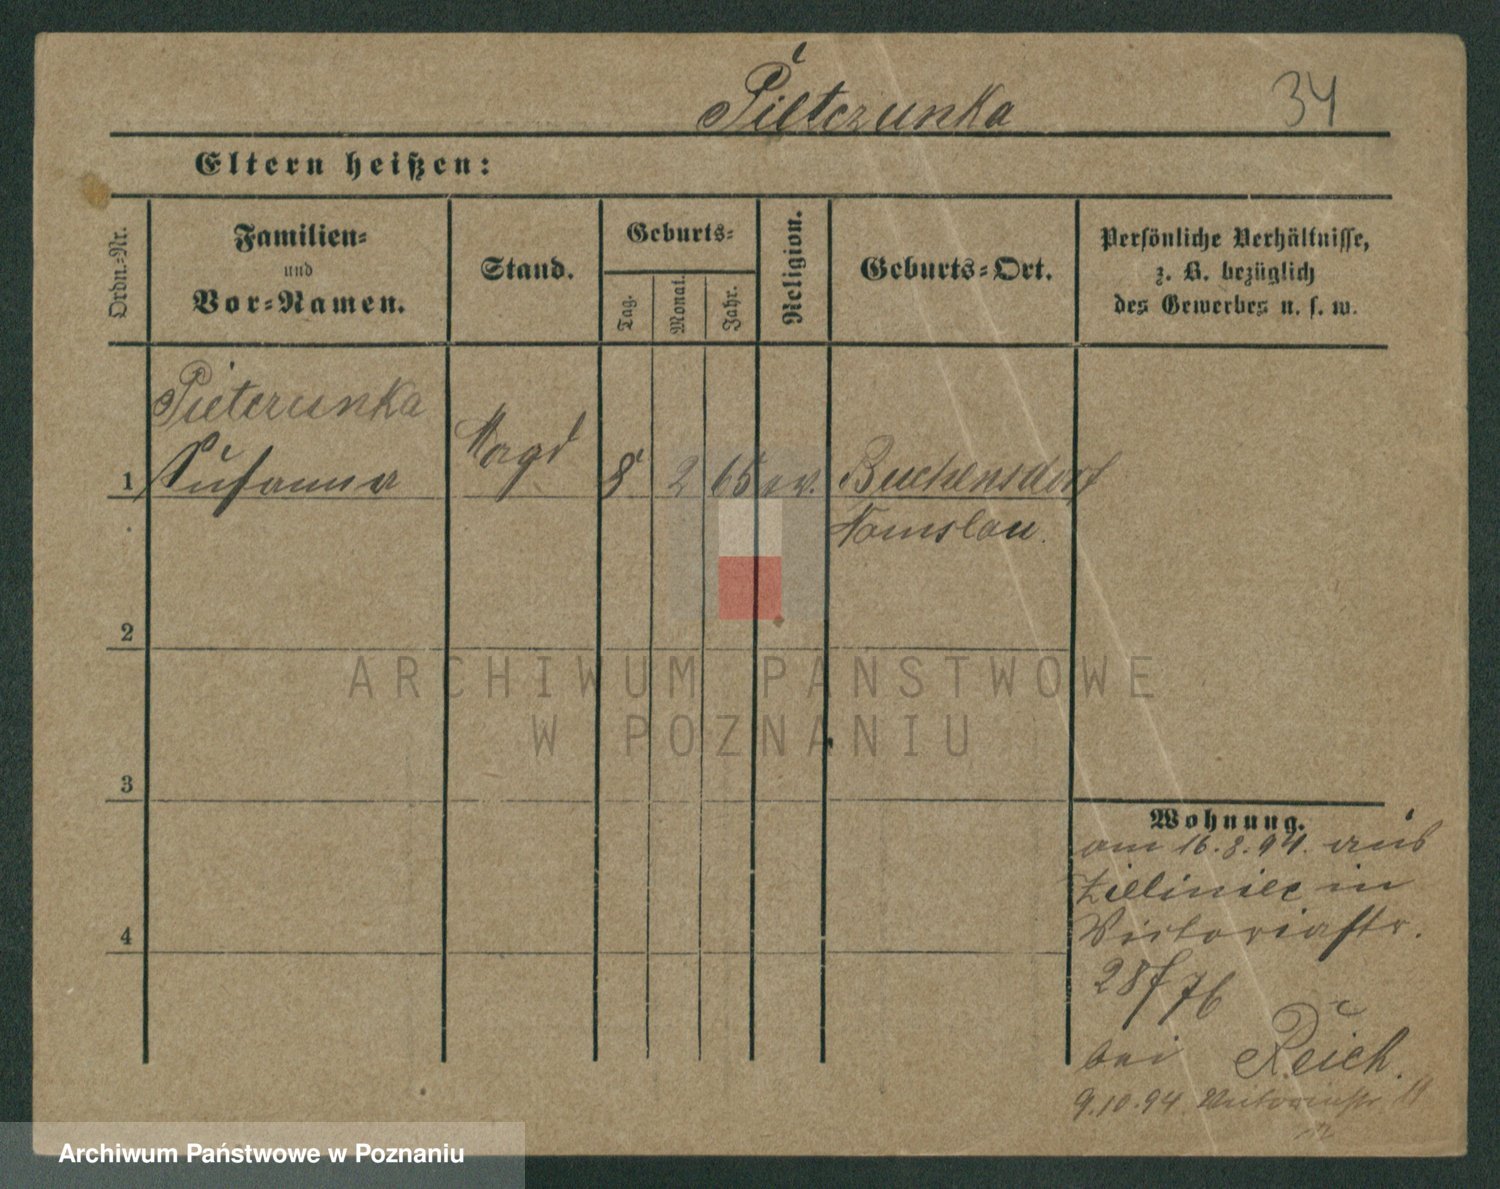 Pieterunka 34
Eltern heißen:
Ordn.-Nr.
Familien-
und
Vor-Namen.
Stand.
Geburts-
Tag.
Monat.
Jahr.
Religion.
Geburts-Ort.
Persönliche Verhältnisse,
z. B. bezüglich
des Gewerbes u. s. w.
Pieterunka
1 Susanna Magd 8 2 65 ev. Buchensdorf
Namslau.
2
ARCHIWUM PAŃSTWOWE
W POZNANIU
3
Wohnung.
am 16.8.94. aus
in
4 Victoriastr.
bei Reich.
9.10.94 Victoriastr
Archiwum Państwowe w Poznaniu